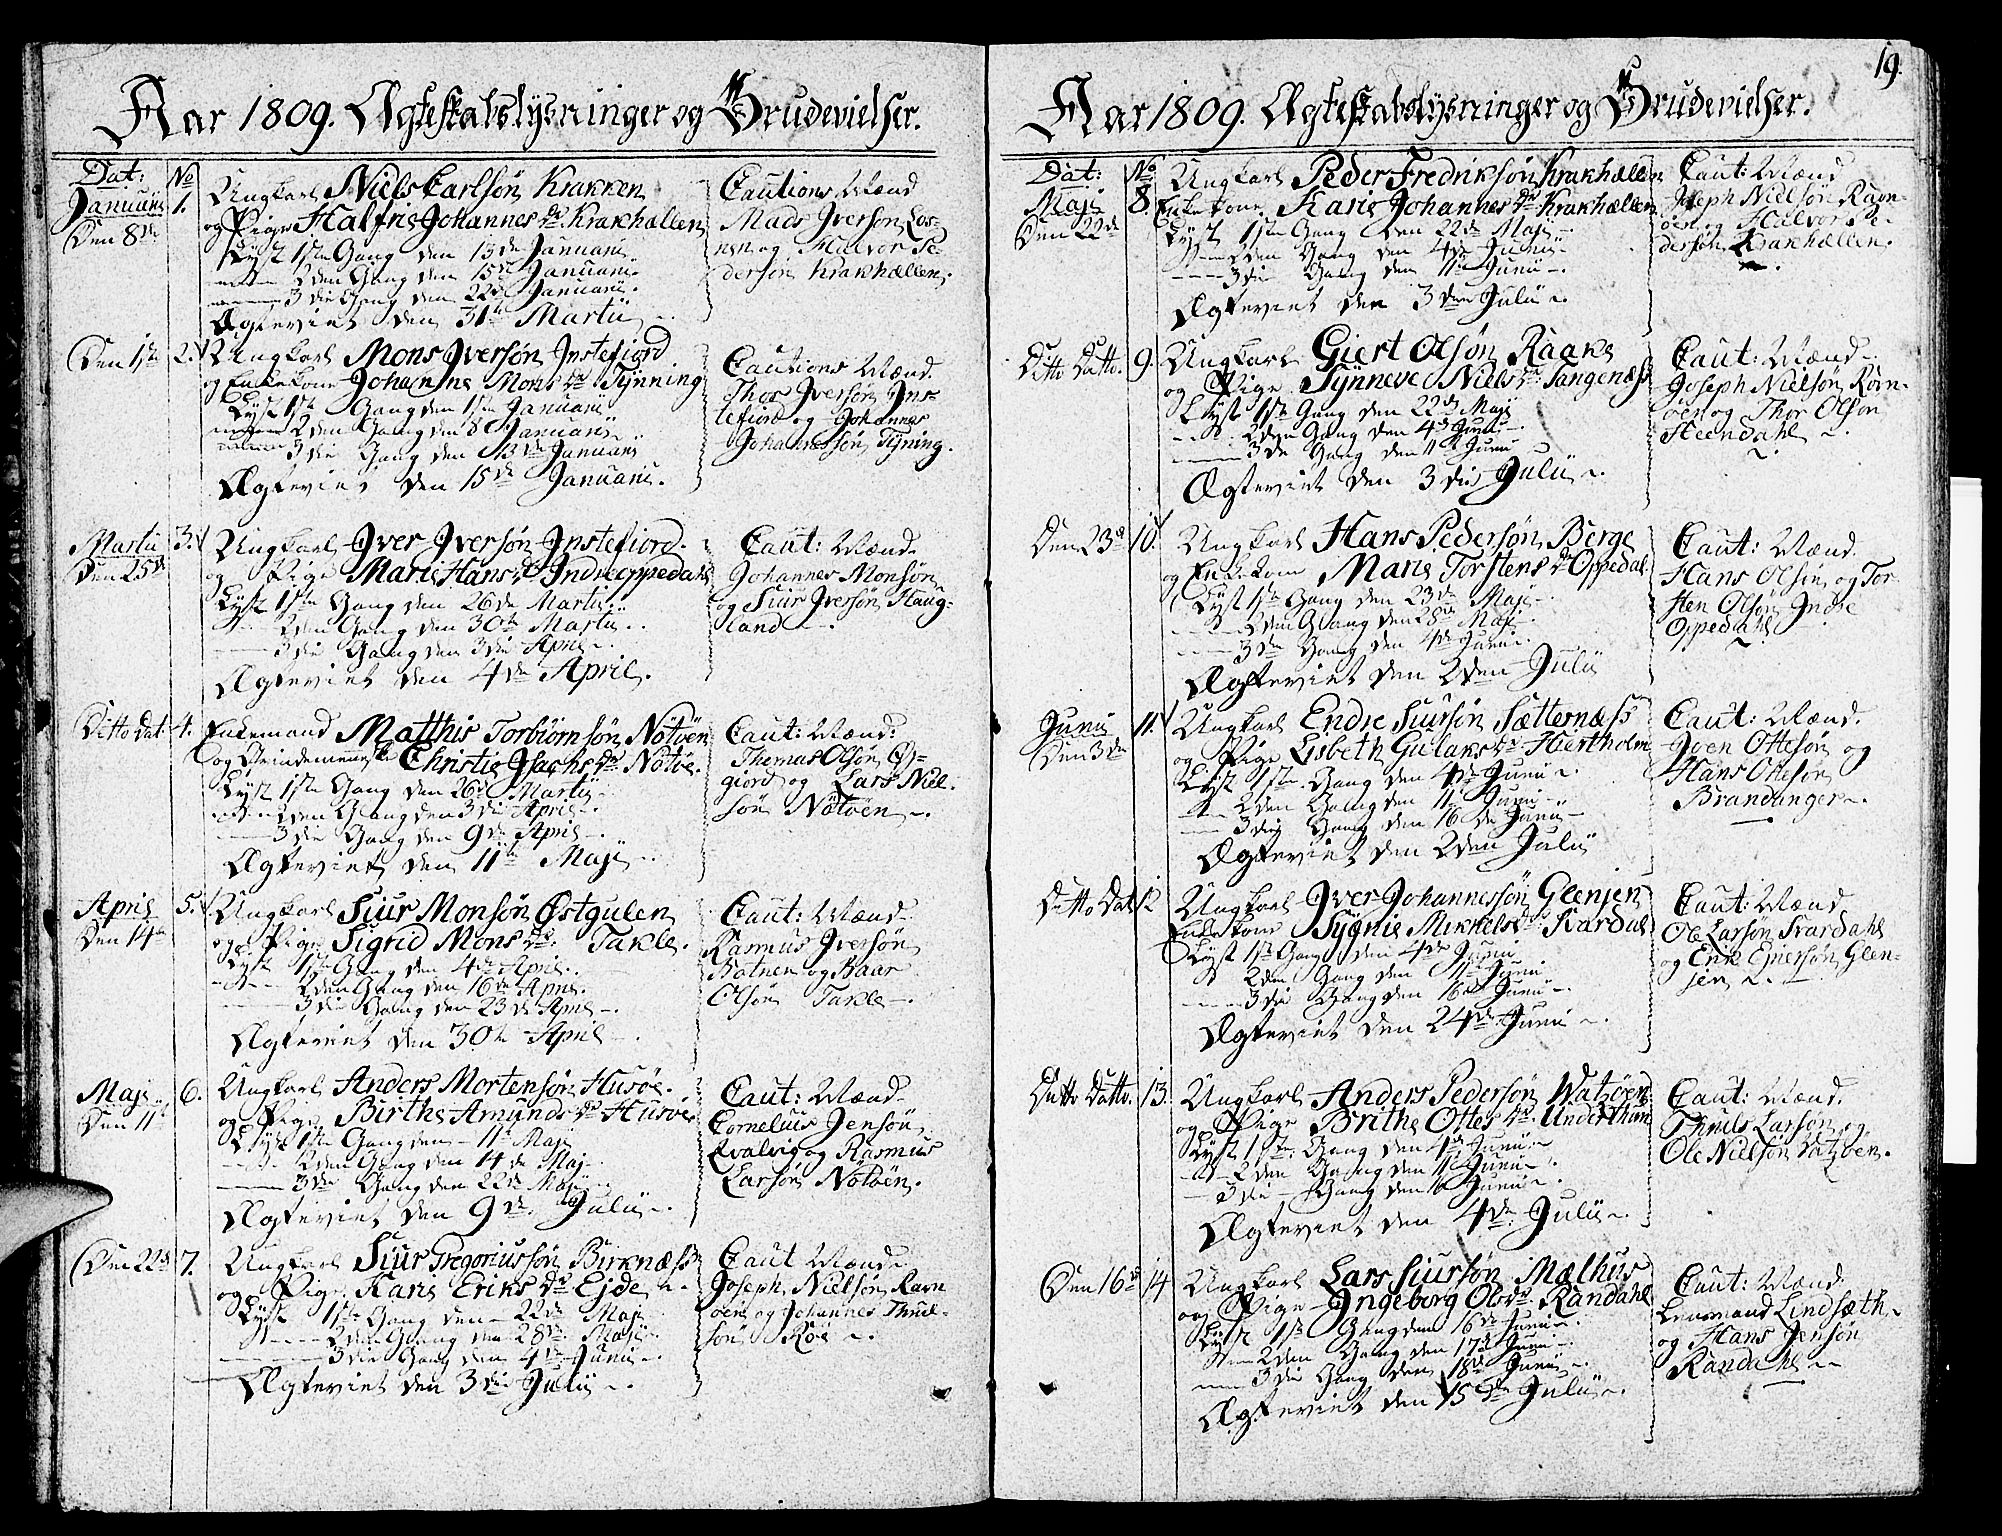 Aar 1809. Ægteskabslysninger og Brudevielser.
Dat: No
Januarii 1. Ungkarl Niels Carlsøn Krakken
Den 8de og Pige Halfrie Johannes Dr Krakhællen
Lyst 1ste Gang den 13de Januarii
2den Gang den 15de Januarii.
3die Gang den 22de Januarii.
Ægteviet den 31te Martii
Cautions Mænd
Mads Iversøn Los-
nen og Halvor Pe-
dersøn Krakhællen.
Den 1ste 2. Ungkarl Mons Iversøn Instefiord
og Enkekone Johanne Mons Dr Tynning
Lyst 1ste Gang den 1ste Januarii
2den Gang den 8 Januarii
3die Gang den 13de Januarii
Ægteviet den 15de Januarii.
Cautions Mænd.
Thor Iversøn Ins-
tefiord og Johannes
Johannessøn Tyning.
Martii 3. Ungkarl Iver Iversøn Instefiord.
Den 25de og Pige Marie Hans Dr Indreoppedahl
Lyst 1ste Gang den 26de Martii
2den Gang den 30te Martii
3die Gang den 3die April
Ægteviet den 4de April.
Caut: Mænd.
Johannes Monsøn
og Siur Iversøn Haug-
land
Ditto Dat. 4. Enkemand Matthis Torbiørnsøn Nötöen
og Qvindemenniske Christie Isachs Dr Nötöe.
Lyst 1ste Gang den 26de Martii
2den Gang den 3die April
3die Gang den 9de April
Ægteviet den 11te Maji
Caut: Mænd:
Thomas Olsøn
giord og Lars Niel-
søn Nötöen
April 5. Ungkarl Siur Monsøn Østgulen
Den 14de og Pige Sigrid Mons Dr. Takle.
Lyst 1ste Gang den 4de April.
2den Gang den 16de April.
3die Gang den 23de April
Ægteviet den 30te April
Caut: Mænd
Rasmus Iversøn
Botnen og Baar
Olsøn Takle
Maji 6. Ungkarl Anders Mortensøn Husøe.
Den 11te og Pige Birthe Amunds Dr Husøe
Lyst 1ste Gang den 11te Maji
2den Gang den 14de Maji
3die Gang den 22de Maji
Ægteviet den 9de Julii
Caut: Mænd
Cornelius Jensøn
Evalvig og Rasmus
Larsøn Nötöen.
Den 22de 7. Ungkarl Siur Gregoriussøn Birknæss
og Pige Karie Eriks Dr Ejde
Lyst 1ste Gang den 22de Maji
2den Gang den 28de Maji
3die Gang den 4de Junii
Ægteviet den 3die Julii
Caut Mænd
Joseph Nielsøn Ravn
øen og Johannes Thuel-
søn Röe
19.
Aar 1809. Ægteskabslysninger og Brudevielser.
Dat: No
Maji 8. Ungkarl Peder Fredriksøn Krakhællen
Den 22de Enkekone Karie Johannes Dr Krakhællen
Lyst 1ste Gang den 22de Maji
2den Gang den 4de Junii
3die Gang den 11te Junii
Ægteviet den 3die Julii
Caut: Mænd
Joseph Nielsøn Ravn-
øen og Halvor Pe-
dersøn Krakhællen.
Ditto Datto. 9. Ungkarl Giert Olsøn Raake
og Pige Synneve Niels Dr. Tangenæss
Lyst 1ste Gang den 22de Maji
2den Gang den 4de Junii
3die Gang den 11te Junii
Ægteviet den 3die Julii
Caut: Mænd
Joseph Nielsøn Ravn-
øen og Thor Olsøn
Steendahl
Den 23de 10. Ungkarl Hans Pedersøn Berge
og Enkekone Marie Torstens Dr Oppedal
Lyst 1ste Gang den 23de Maji
2den Gang den 28de Maji
3die Gang den 4de Junii
Ægteviet den 2den Julii
Caut: Mænd.
Hans Olsøn og Tor-
sten Olsøn Indre
Oppedahl
Junii 11. Ungkarl Endre Siursøn Sætternæss
Den 3die og Pige Lisbeth Gulaks Dr Hiertholm
Lyst 1ste Gang den 4de Junii
2den Gang den 11te Junii
3die Gang den 16de Junii
Ægteviet den 2den Julii
Caut: Mænd.
Iven Ottesøn og
Hans Ottesøn
Brandanger.
Ditto Dat 12 Ungkarl Iver Johannessøn Gleenjen
Enkekone Sygnie Mikkels Dr Svardal
Lyst 1ste Gang den 4de Junii
2den Gang den 11te Junii
3die Gang den 16de Junii
Ægteviet den 24de Junii
Caut: Mænd.
Ole Larsøn Svardahl
og Erik Einersøn Gleen-
jen
Ditto Datto. 13. Ungkarl Anders Pedersøn Watzøen
og Pige Brithe Ottes Dr. Underthun
Lyst 1ste Gang den 4de Junii
2den Gang den 11te Junii
3die Gang den 16 Junii
Ægteviet den 4de Julii
Caut: Mænd.
Thuels Larsøn og
Ole Nielsøn Vatzøen.
Den 16de 14 Ungkarl Lars Siursøn Mælhus
og Pige Ingeborg Ols Dr. Randahl
Lyst 1ste Gang den 16de Junii
2den Gang den 17de Junii
3die Gang den 18de Junii
Ægteviet den 15de Julii
Caut: Mænd.
Lensmand Lindsæth
og Hans Jensøn
Randahl